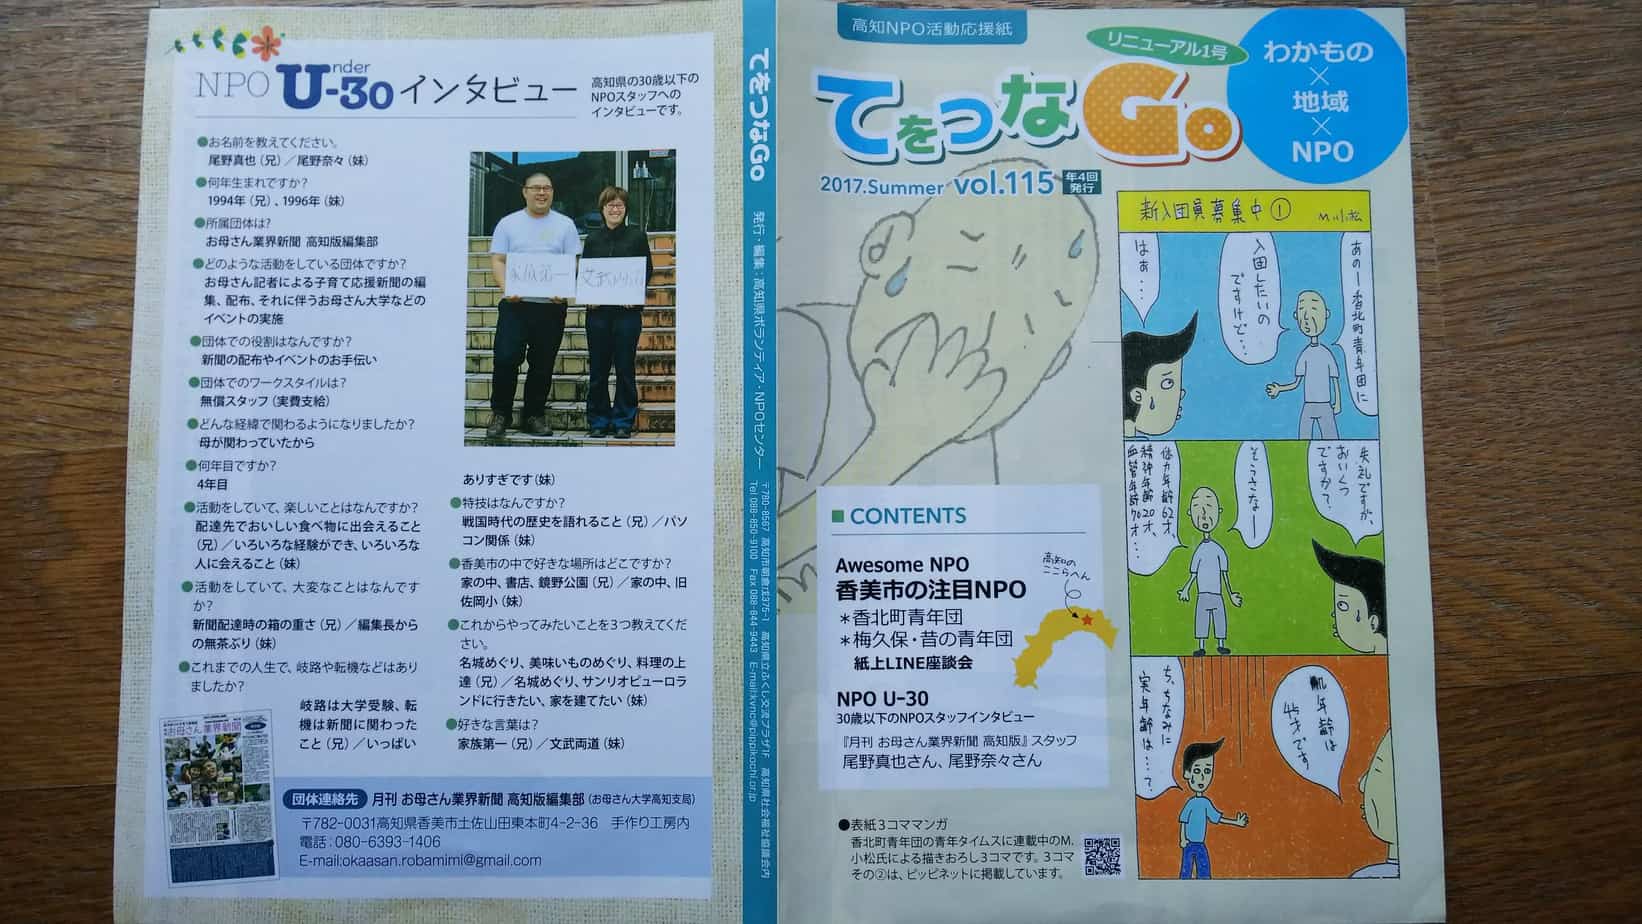 NPO Under U-30 インタビュー
高知県の30歳以下の
NPOスタッフへの
インタビューです。
●お名前を教えてください。
尾野真也(兄)／尾野奈々(妹)
●何年生まれですか?
1994年(兄)、1996年(妹)
●所属団体は?
お母さん業界新聞 高知版編集部
●どのような活動をしている団体ですか?
お母さん記者による子育て応援新聞の編
集、配布、それに伴うお母さん大学などの
イベントの実施
●団体での役割はなんですか?
新聞の配布やイベントのお手伝い
●団体でのワークスタイルは?
無償スタッフ(実費支給)
●どんな経緯で関わるようになりましたか?
母が関わっていたから
●何年目ですか?
4年目
●活動をしていて、楽しいことはなんですか?
配達先でおいしい食べ物に出会えること
(兄)／いろいろな経験ができ、いろいろな
人に会えること(妹)
●活動をしていて、大変なことはなんです
か?
新聞配達時の箱の重さ(兄)／編集長から
の無茶ぶり(妹)
●これまでの人生で、岐路や転機などはあり
ましたか?
岐路は大学受験、転
機は新聞に関わった
こと(兄)／いっぱい
ありすぎです(妹)
●特技はなんですか?
戦国時代の歴史を語れること(兄)／パソ
コン関係(妹)
●香美市の中で好きな場所はどこですか?
家の中、書店、鏡野公園(兄)／家の中、旧
佐岡小(妹)
●これからやってみたいことを3つ教えてくだ
さい。
名城めぐり、美味いものめぐり、料理の上
達(兄)／名城めぐり、サンリオピューロラ
ンドに行きたい、家を建てたい(妹)
●好きな言葉は?
家族第一(兄)／文武両道(妹)
家族第一
文武両道
お母さん業界新聞
団体連絡先 月刊 お母さん業界新聞 高知版編集部(お母さん大学高知支局)
〒782-0031高知県香美市土佐山田東本町4-2-36 手作り工房内
電話:080-6393-1406
E-mail:okaasan.robamimi@gmail.com
てをつなGo 発行・編集:高知県ボランティア・NPOセンター
〒780-8567 高知市朝倉戊375-1 高知県立ふくし交流プラザ1F 高知県社会福祉協議会内
Tel 088-850-9100 Fax 088-844-9443 E-mail:kvnc@pippikochi.or.jp
高知NPO活動応援紙
リニューアル1号
てをつなGo
わかもの
×
地域
×
NPO
2017.Summer vol.115 年4回
発行
新入団員募集中① M.小松
あのー香北町青年団に
入団したいの
ですけど…
はぁ…
失礼ですが、
おいくつ
ですか?
そうさなー
体力年齢62才、
精神年齢20才、
血管年齢70才…
肌年齢は
45才です
ち、ちなみに
実年齢は…?
■CONTENTS
Awesome NPO
香美市の注目NPO
＊香北町青年団
＊梅久保・昔の青年団
紙上LINE座談会
高知の
ここらへん
NPO U-30
30歳以下のNPOスタッフインタビュー
『月刊 お母さん業界新聞 高知版』スタッフ
尾野真也さん、尾野奈々さん
●表紙3コママンガ
香北町青年団の青年タイムスに連載中のM.
小松氏による描きおろし3コマです。3コマ
その②は、ピッピネットに掲載しています。